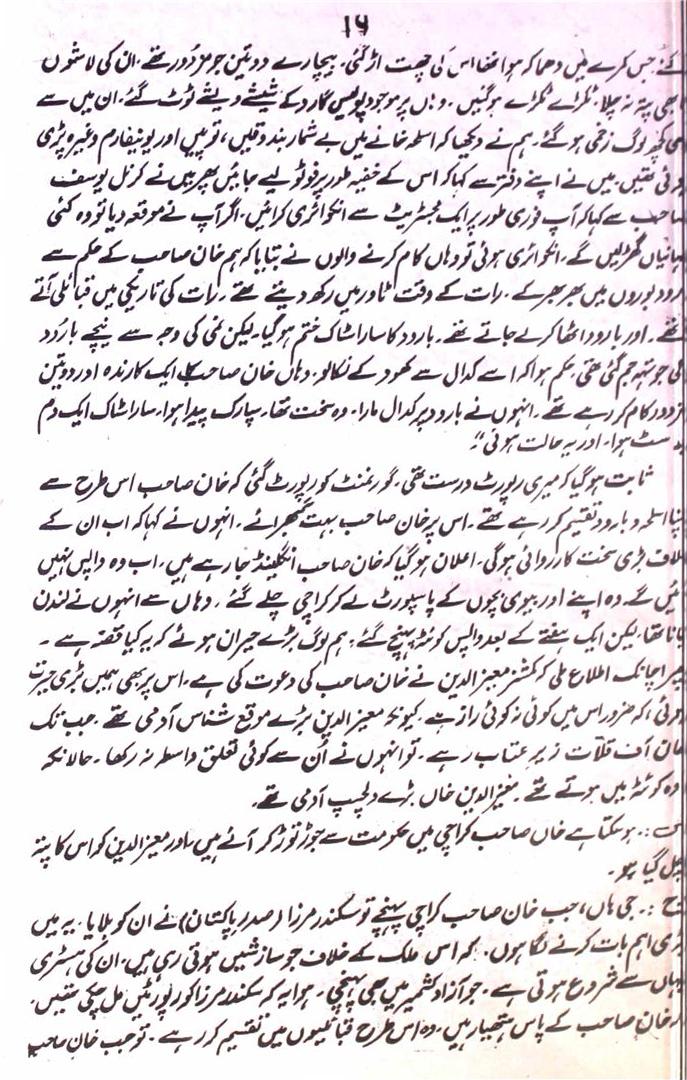 ۱۶
گئے جس کمرے میں دھماکہ ہوا تھا اس کی چھت اڑ گئی۔ بیچارے دو تین جو مزدور تھے۔ ان کی لاشوں
کا بھی پتہ نہ چلا۔ ٹکڑے ٹکڑے ہوگئیں۔ وہاں پر موجود پولیس گارد کے شیشے ویشے ٹوٹ گئے۔ ان میں سے
بھی کچھ لوگ زخمی ہو گئے۔ ہم نے دیکھا کہ اسلحہ خانے میں بے شمار بندوقیں، توپیں اور یونیفارم وغیرہ پڑی
ہوئی تھیں۔ میں نے اپنے دفتر سے کہا کہ اس کے خفیہ طور پر فوٹو لیے جائیں پھر میں نے کرنل یوسف
صاحب سے کہا کہ آپ فوری طور پر ایک مجسٹریٹ سے انکوائری کرائیں۔ اگر آپ نے موقعہ دیا تو وہ کئی
کہانیاں گھڑ لیں گے۔ انکوائری ہوئی تو وہاں کام کرنے والوں نے بتایا کہ ہم خان صاحب کے حکم سے
بارود بوروں میں بھر بھر کے۔ رات کے وقت ٹاور میں رکھ دیتے تھے۔ رات کی تاریکی میں قبائلی آتے
تھے۔ اور بارود اٹھا کر لے جاتے تھے۔ بارود کا سارا سٹاک ختم ہو گیا۔ لیکن نمی کی وجہ سے نیچے بارود
کی جو تہہ جم گئی تھی۔ حکم ہوا کہ اسے کدال سے کھود کے نکالو۔ وہاں خان صاحب کا ایک کارندہ اور دو تین
مزدور کام کر رہے تھے۔ انہوں نے بارود پر کدال مارا۔ وہ سخت تھا۔ سپارک پیدا ہوا۔ سارا سٹاک ایک دم
سٹ ہوا۔ اور یہ حالت ہوئی"۔
ثابت ہو گیا کہ میری رپورٹ درست تھی۔ گورنمنٹ کو رپورٹ گئی کہ خان صاحب اس طرح سے
اپنا اسلحہ و بارود تقسیم کر رہے تھے۔ اس پر خان صاحب بہت گھبرائے۔ انہوں نے کہا کہ اب ان کے
خلاف بڑی سخت کارروائی ہوگی۔ اعلان ہو گیا کہ خان صاحب انگلینڈ جا رہے ہیں۔ اب وہ واپس نہیں
آئیں گے۔ وہ اپنے اور بیوی بچوں کے پاسپورٹ لے کر کراچی چلے گئے۔ وہاں سے انہوں نے لندن
جانا تھا۔ لیکن ایک ہفتے کے بعد واپس کوئٹہ پہنچ گئے۔ ہم لوگ بڑے حیران ہوئے کہ یہ کیا قصّہ ہے۔
پھر اچانک اطلاع ملی کہ کمشنر معیز الدین نے خان صاحب کی دعوت کی ہے۔ اس پر بھی ہمیں بڑی حیرت
ہوئی، کہ ضرور اس میں کوئی نہ کوئی راز ہے۔ کیونکہ معیز الدین بڑے موقع شناس آدمی تھے۔ جب تک
خان آف قلات زیر عتاب رہے۔ تو انہوں نے اُن سے کوئی تعلق واسطہ نہ رکھا۔ حالانکہ
وہ کوئٹہ میں ہوتے تھے۔ معیز الدین خاں بڑے دلچسپ آدمی تھے۔
س:۔ ہو سکتا ہے خاں صاحب کراچی میں حکومت سے جوڑ توڑ کر آئے ہیں۔ اور معیز الدین کو اس کا پتہ
چل گیا ہو۔
ج:۔ جی ہاں، جب خان صاحب کراچی پہنچے تو سکندر مرزا (صدر پاکستان) نے ان کو بلایا۔ یہ میں
بڑی اہم بات کرنے لگا ہوں۔ کہ اس ملک کے خلاف جو سازشیں ہوتی رہی ہیں۔ ان کی ہسٹری
یہاں سے شروع ہوتی ہے۔ جو آزاد کشمیر میں بھی پہنچی۔ ہوا یہ کہ سکندر مرزا کو رپورٹیں مل چکی تھیں۔
کہ خان صاحب کے پاس ہتھیار ہیں۔ وہ اس طرح قبائلیوں میں تقسیم کر رہے۔ تو جب خان صاحب